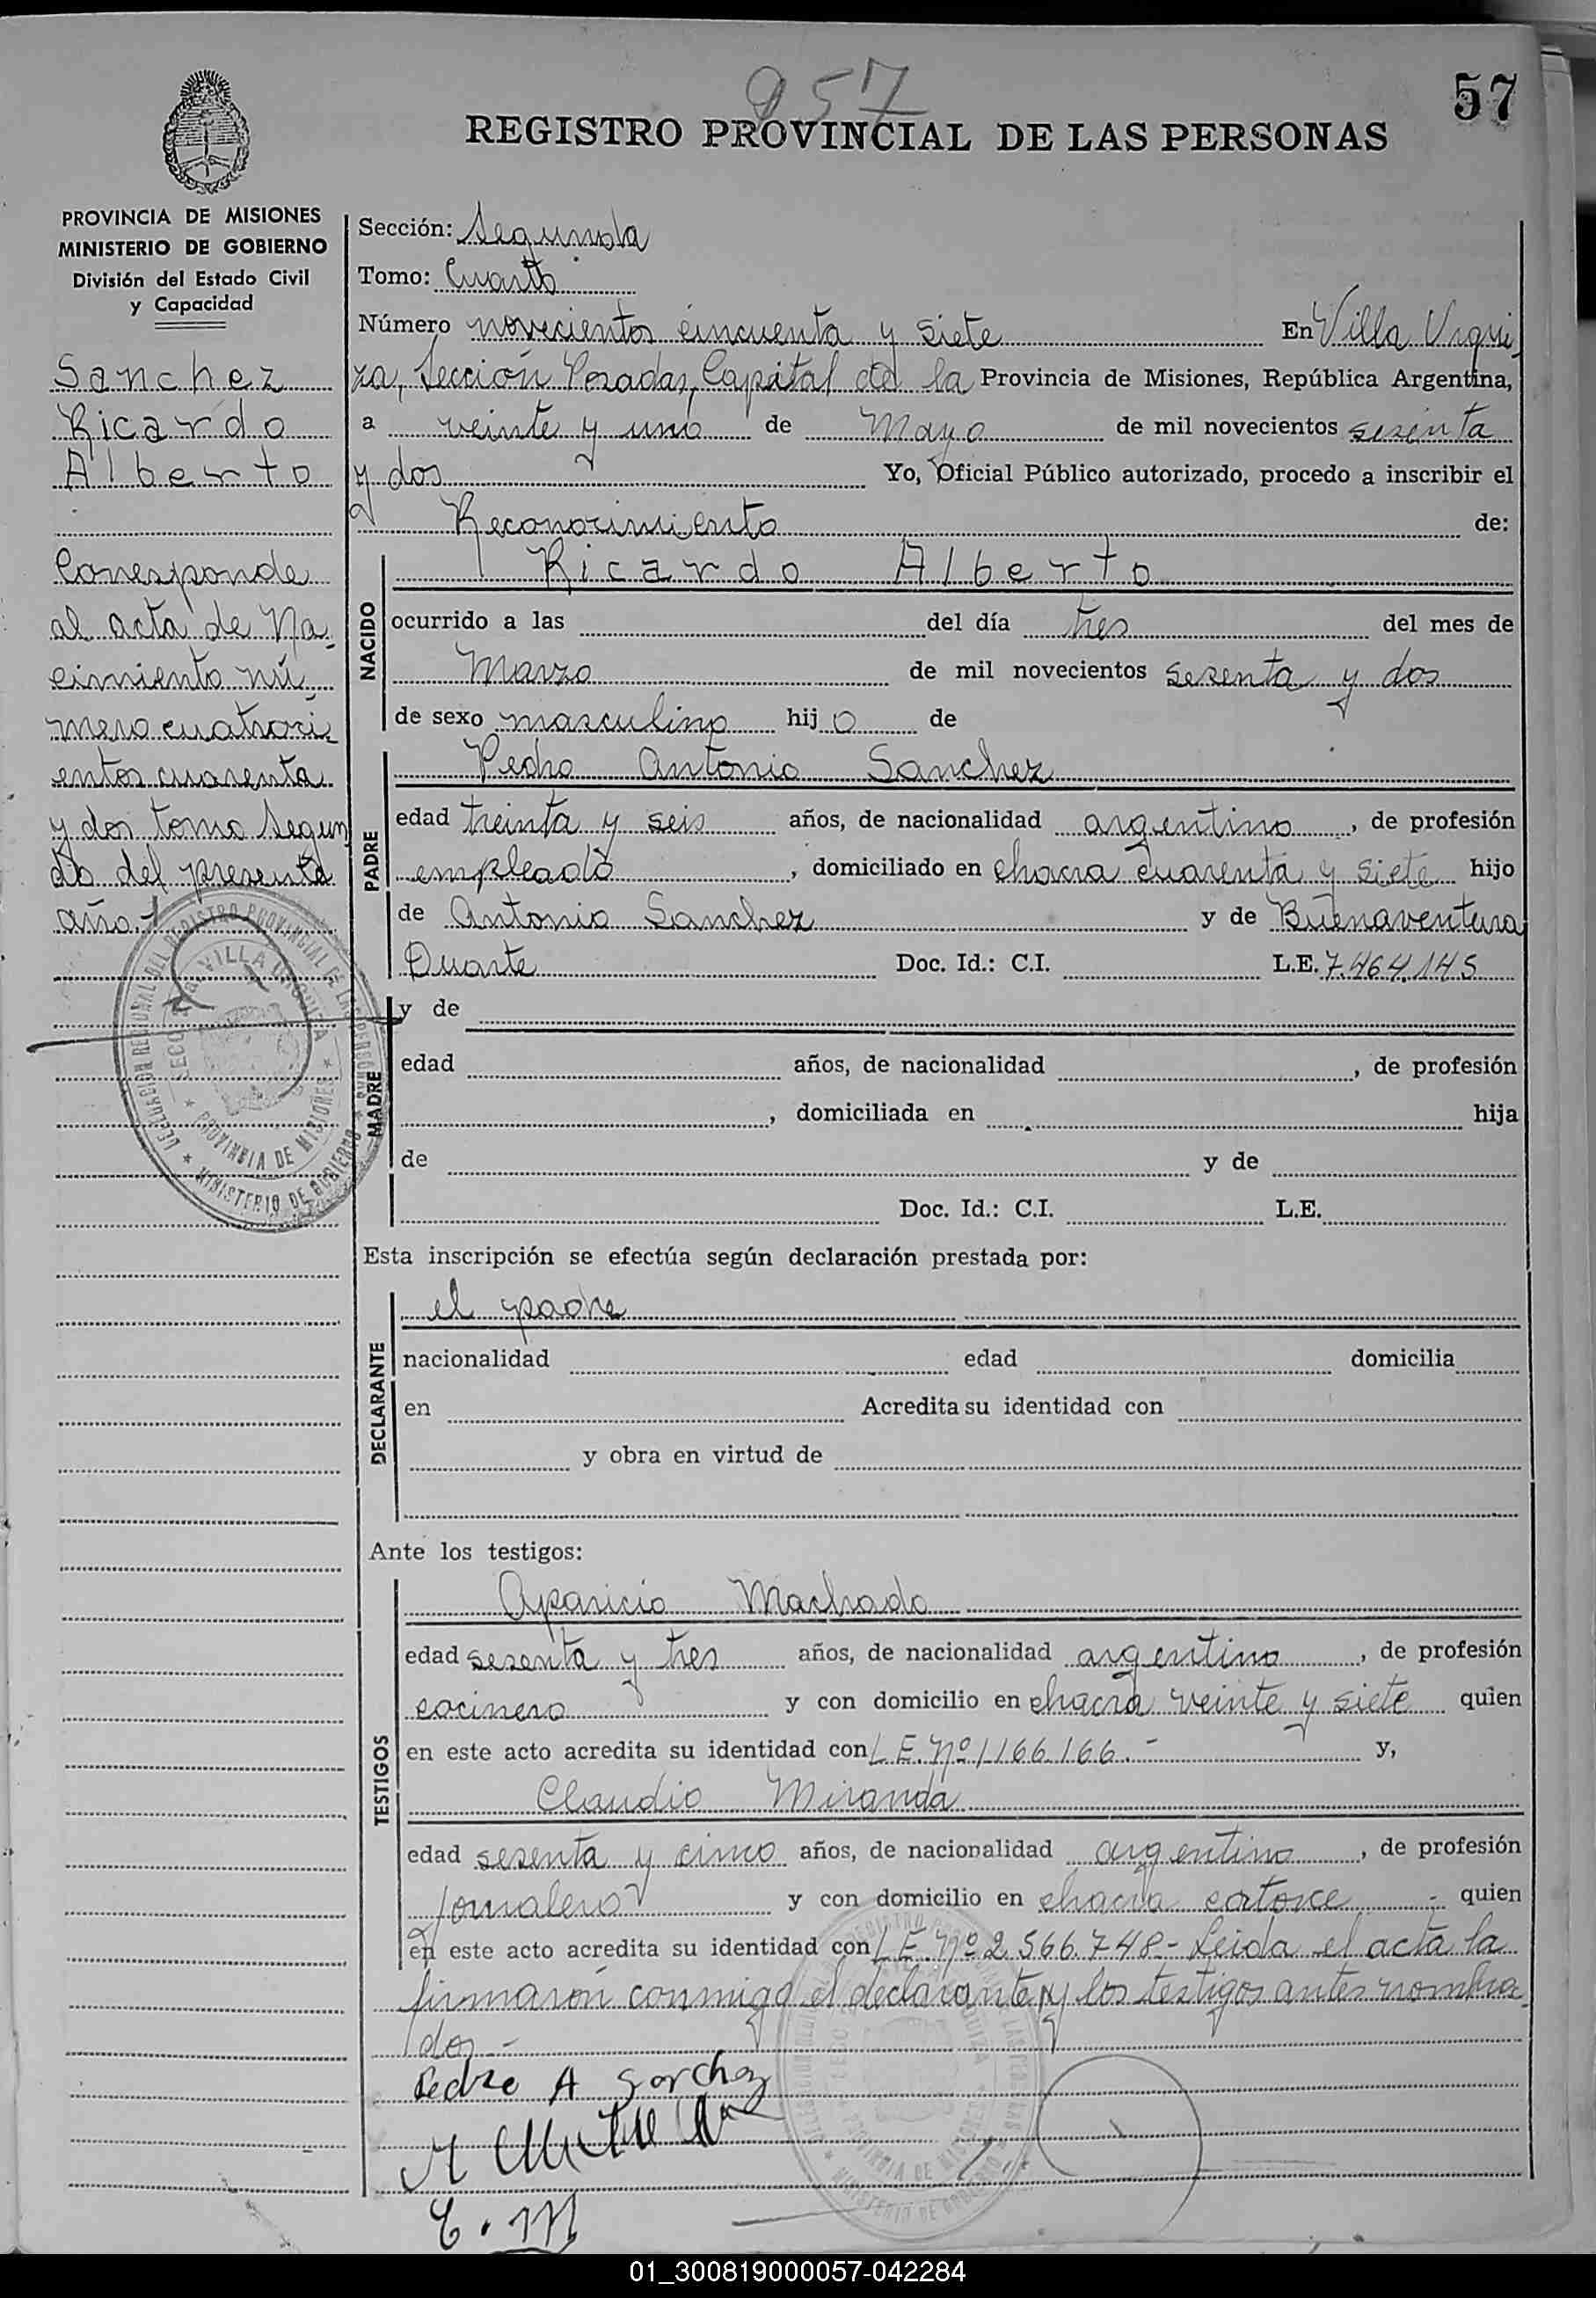 957
57
REGISTRO PROVINCIAL DE LAS PERSONAS
PROVINCIA DE MISIONES
MINISTERIO DE GOBIERNO
División del Estado Civil
y Capacidad
Sanchez
Ricardo
Alberto
Corresponde
al acta de Na-
cimiento nú
mero cuatroci-
entos cuarenta
y dos tomo Segun
do del presente
año.
Sección: Segunda
Tomo: Cuarto
Número novecientos cincuenta y siete En Villa Urqui-
za, Sección Posadas, Capital de la Provincia de Misiones, República Argentina,
a veinte y uno de Mayo de mil novecientos sesenta
y dos Yo, Oficial Público autorizado, procedo a inscribir el
Reconocimiento de:
NACIDO
Ricardo Alberto
ocurrido a las del día tres del mes de
Marzo de mil novecientos sesenta y dos
de sexo masculino hijo de
PADRE
Pedro Antonio Sanchez
edad treinta y seis años, de nacionalidad argentino, de profesión
empleado, domiciliado en chacra cuarenta y siete hijo
de Antonio Sanchez y de Buenaventura
Duarte Doc. Id.: C.I. L.E. 7.464.145
MADRE
y de
edad años, de nacionalidad , de profesión
, domiciliada en hija
de y de
Doc. Id.: C.I. L.E.
Esta inscripción se efectúa según declaración prestada por:
DECLARANTE
el padre
nacionalidad edad domicilia
en Acredita su identidad con
y obra en virtud de
Ante los testigos:
TESTIGOS
Aparicio Machado
edad sesenta y tres años, de nacionalidad argentino, de profesión
cocinero y con domicilio en chacra veinte y siete quien
en este acto acredita su identidad con L.E. Nº 1166166.- y,
Claudio Miranda
edad sesenta y cinco años, de nacionalidad argentino, de profesión
jornalero y con domicilio en chacra catorce quien
en este acto acredita su identidad con L.E Nº 2.566.748- Leida el acta la
firmaron conmigo el declarante y los testigos antes nombra-
dos.-
Pedro A Sanchez
C. M
01_300819000057-042284